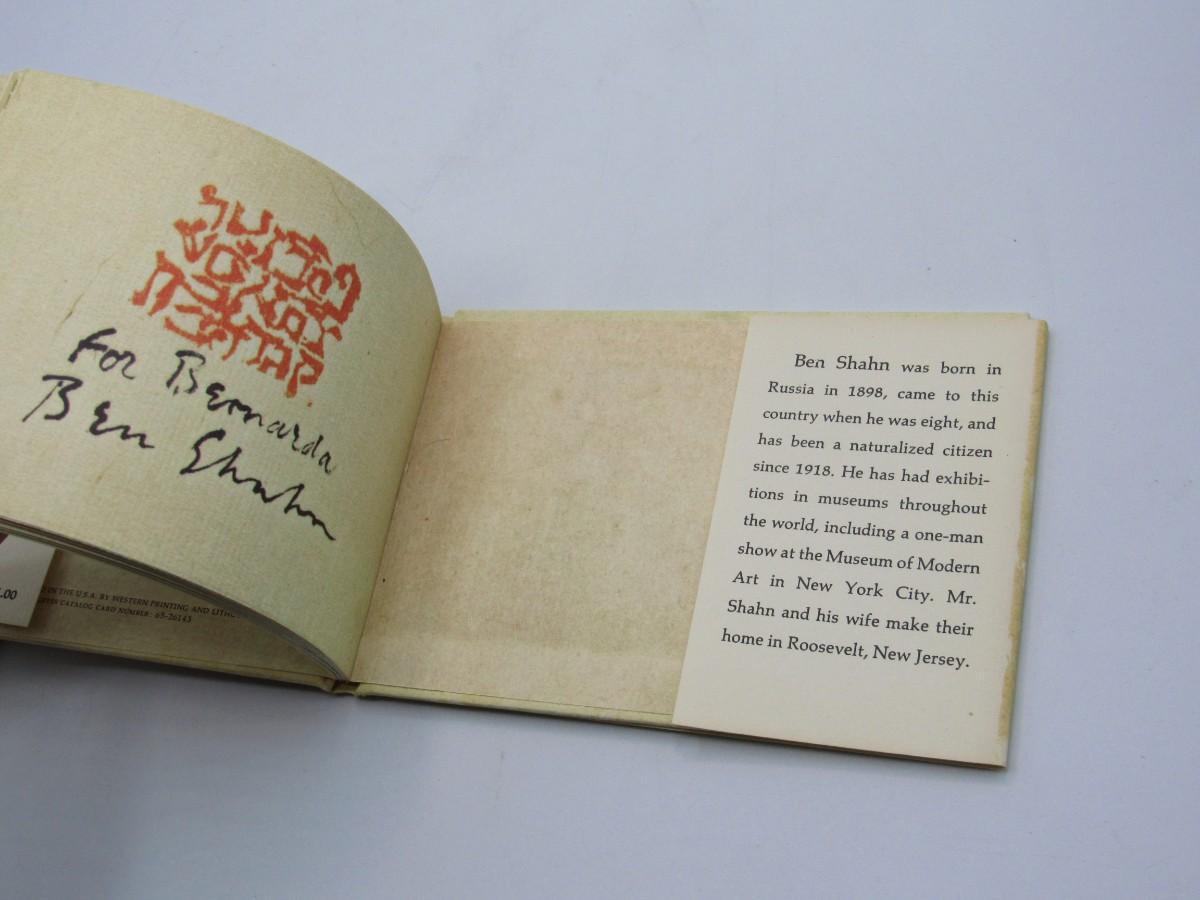 For Bernarda
Ben Shahn
.00
IN THE U.S.A. BY WESTERN PRINTING AND
CATALOG CARD NUMBER: 65-26143
Ben Shahn was born in
Russia in 1898, came to this
country when he was eight, and
has been a naturalized citizen
since 1918. He has had exhibi-
tions in museums throughout
the world, including a one-man
show at the Museum of Modern
Art in New York City. Mr.
Shahn and his wife make their
home in Roosevelt, New Jersey.